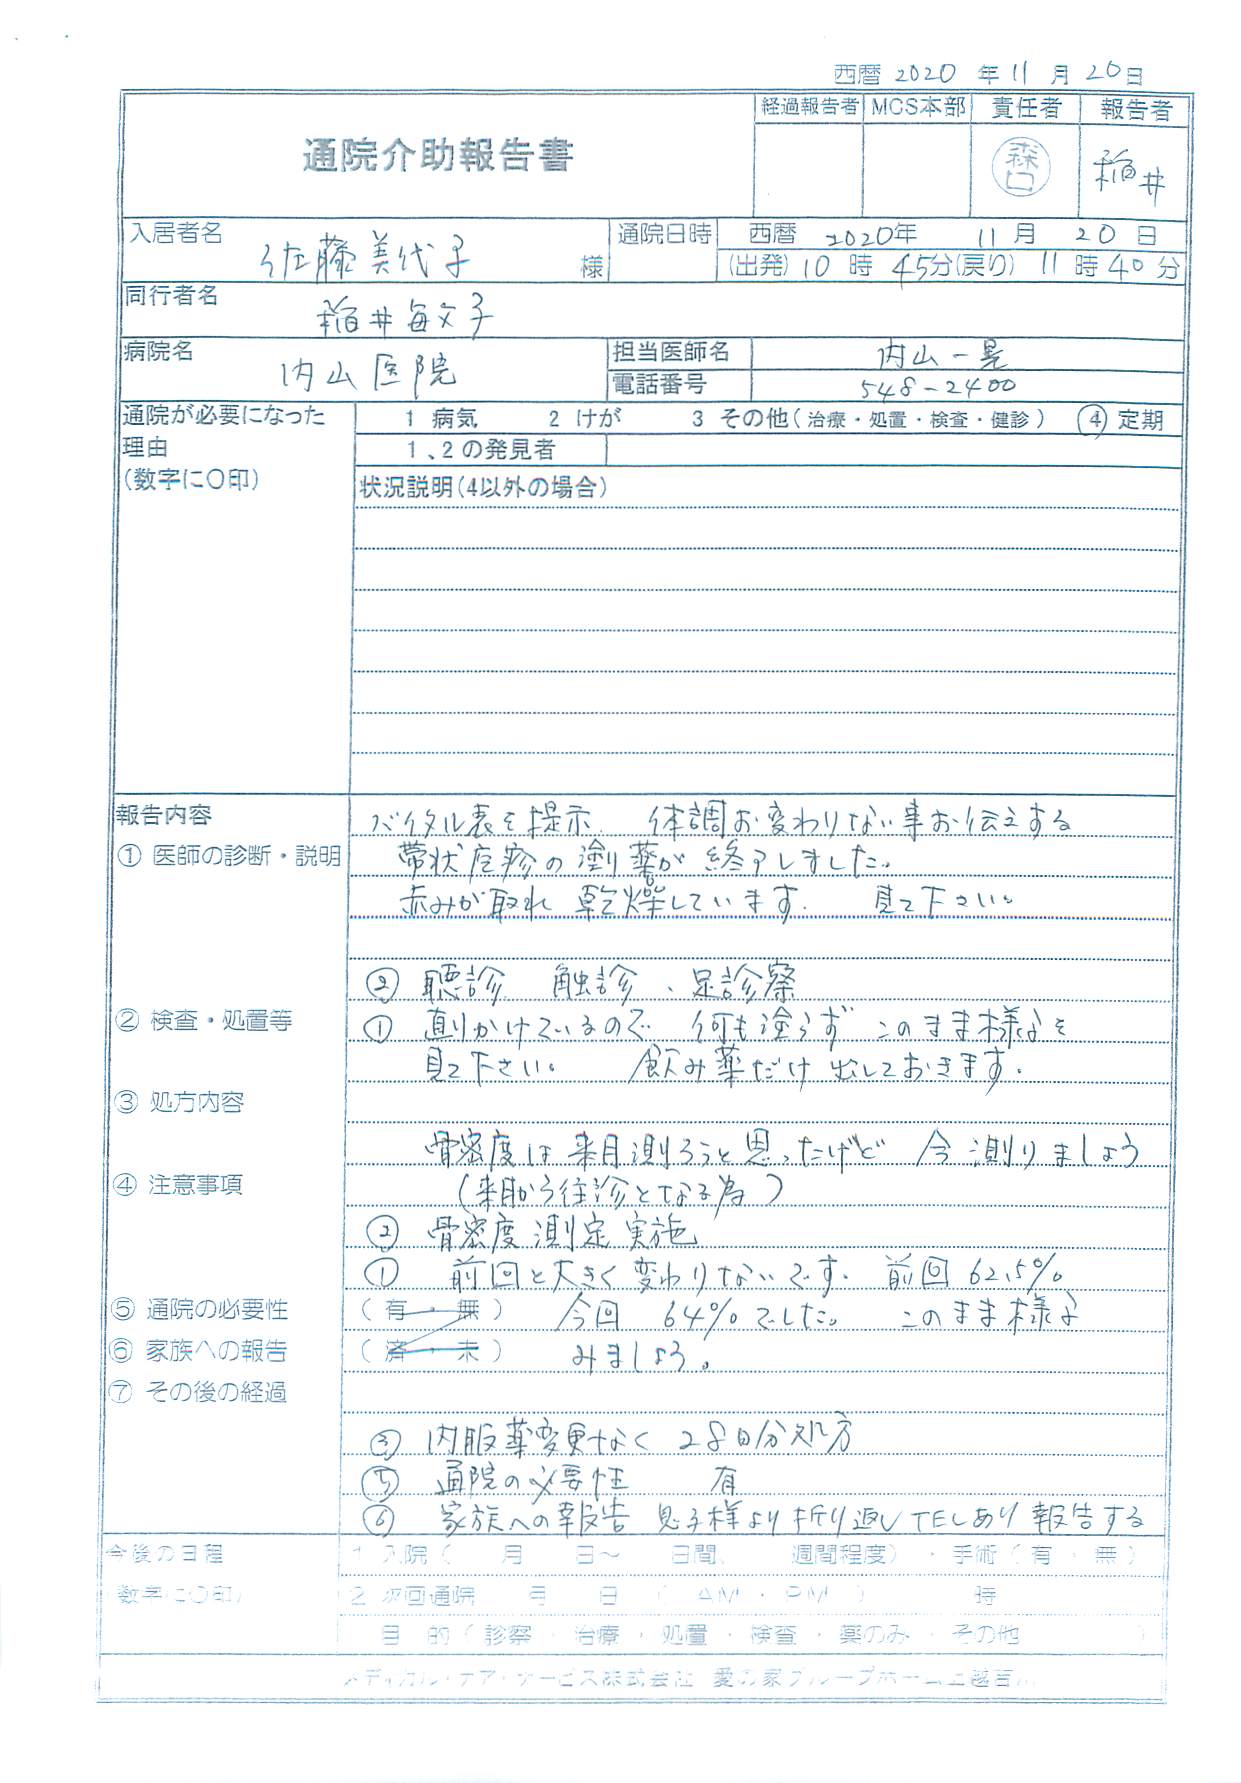 西暦 2020 年 11 月 20日
経過報告者 MCS本部 責任者 報告者
通院介助報告書
森口 稲井
入居者名 佐藤美代子 様
通院日時 西暦 2020年 11月 20日
(出発) 10時 45分(戻り) 11時40分
同行者名 稲井毎文子
病院名 内山医院
担当医師名 内山一晃
電話番号 548-2400
通院が必要になった
理由
(数字に〇印)
1 病気 2 けが 3 その他(治療・処置・検査・健診) ④ 定期
1、2の発見者
状況説明(4以外の場合)
報告内容
① 医師の診断・説明
② 検査・処置等
③ 処方内容
④ 注意事項
⑤ 通院の必要性 (有・無)
⑥ 家族への報告 (済・未)
⑦ その後の経過
バイタル表を提示 体調お変わりない事お伝えする
帯状疱疹の塗り薬が終了しました。
赤みが取れ 乾燥しています. 見て下さい。
② 聴診 触診、足診察
① 直りかけているので 何も塗らず このまま様子を
見て下さい。 飲み薬だけ出しておきます.
骨密度は来月測ろうと思ったけど 今測りましょう
(来月から往診となる為)
② 骨密度測定実施
① 前回と大きく変わりないです. 前回 62.5%
今回 64%でした。 このまま様子
みましょう。
③ 内服薬変更なく 28日分処方
⑤ 通院の必要性 有
⑥ 家族への報告 息子様より折り返しTELあり報告する
今後の日程
数字に〇印)
1 入院( 月 日～ 日間、 週間程度)・手術(有・無)
2 次回通院 月 日 ( AM・PM ) 時
目 的(診察・治療・処置・検査・薬のみ・その他 )
メディカル・ケア・サービス株式会社 愛の家グループホーム上越吉